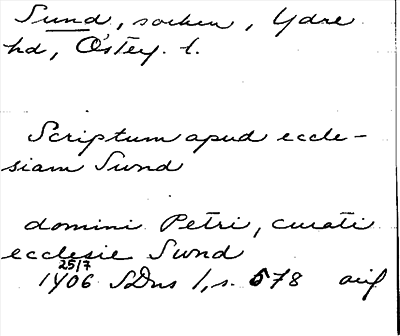 Sund, socken, Ydre
hd, Östey. l.
Scriptum apud eccle-
siam Sund
domini Petri, curati
ecclesie Sund
25/7
1406 SDns 1, s. 578 avf